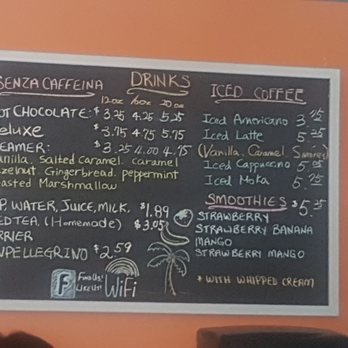 SENZA CAFFEINA
12oz 16oz 20oz
OT CHOCOLATE: $3.25 4.25 5.25
eluxe $3.75 4.75 5.75
EAMER: $3.25 4.00 4.75
anilla, Salted Caramel, Caramel
zelnut, Gingerbread, peppermint
asted Marshmallow
P, WATER, JUICE, MILK, $1.89
ED TEA, (Homemade) $3.05
RRIER
NPELLEGRINO $2.59
Find Us!
Like Us!
WiFi
DRINKS
ICED COFFEE
Iced Americano 3.75
Iced Latte 5.25
(Vanilla, Caramel,
Iced Cappuccino 5.
Iced Moka 5.75
SMOOTHIES $5.25
STRAWBERRY
STRAWBERRY BANANA
MANGO
STRAWBERRY MANGO
*WITH WHIPPED CREAM